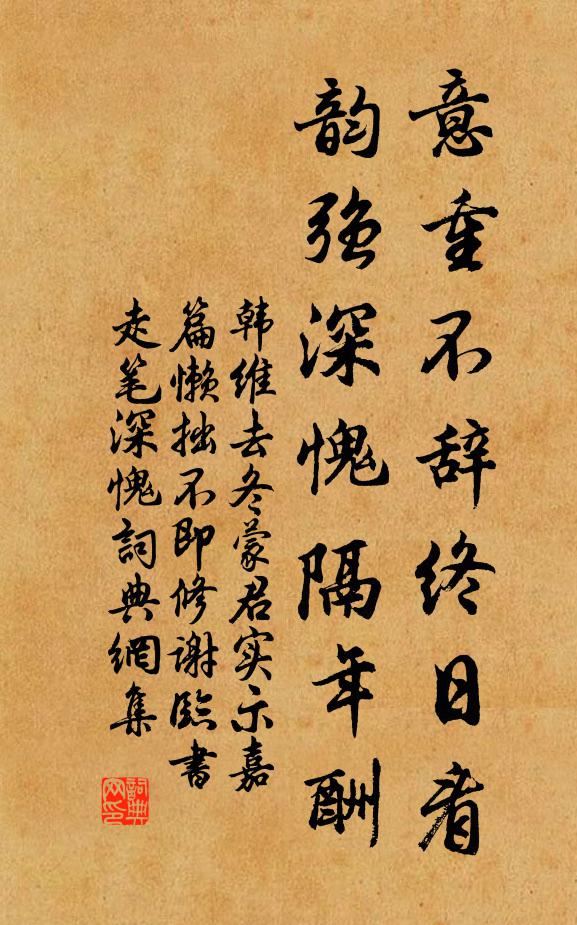 意重不辞终日看
韵强深愧隔年酬
韩维去冬蒙君实示嘉
篇懒拙不即修谢临書
走笔深愧詞典網集
詞典网印